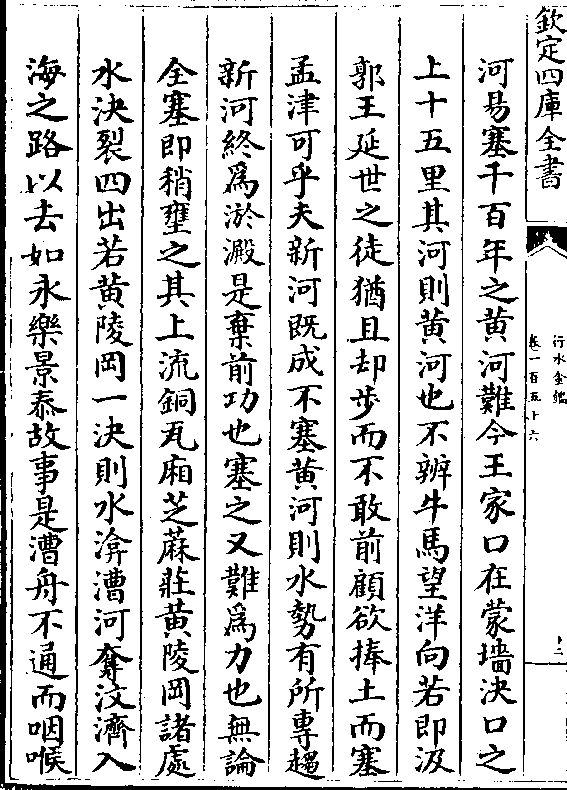 欽定四庫全書
行水金鑑
卷一百五十六
河易塞千百年之黄河難今王家口在蒙墻決口之
上十五里其河則黄河也不辨牛馬望洋向若即汲
郭王延世之徒猶且却步而不敢前顧欲捧土而塞
孟津可乎夫新河既成不塞黄河則水勢有所專趨
新河終爲淤澱是棄前功也塞之又難爲力也無論
全塞即稍壅之其上流銅瓦廂芝蔴莊黄陵岡諸處
水決裂四出若黄陵岡一決則水渰漕河奪汶濟入
海之路以去如永樂景泰故事是漕舟不通而咽喉